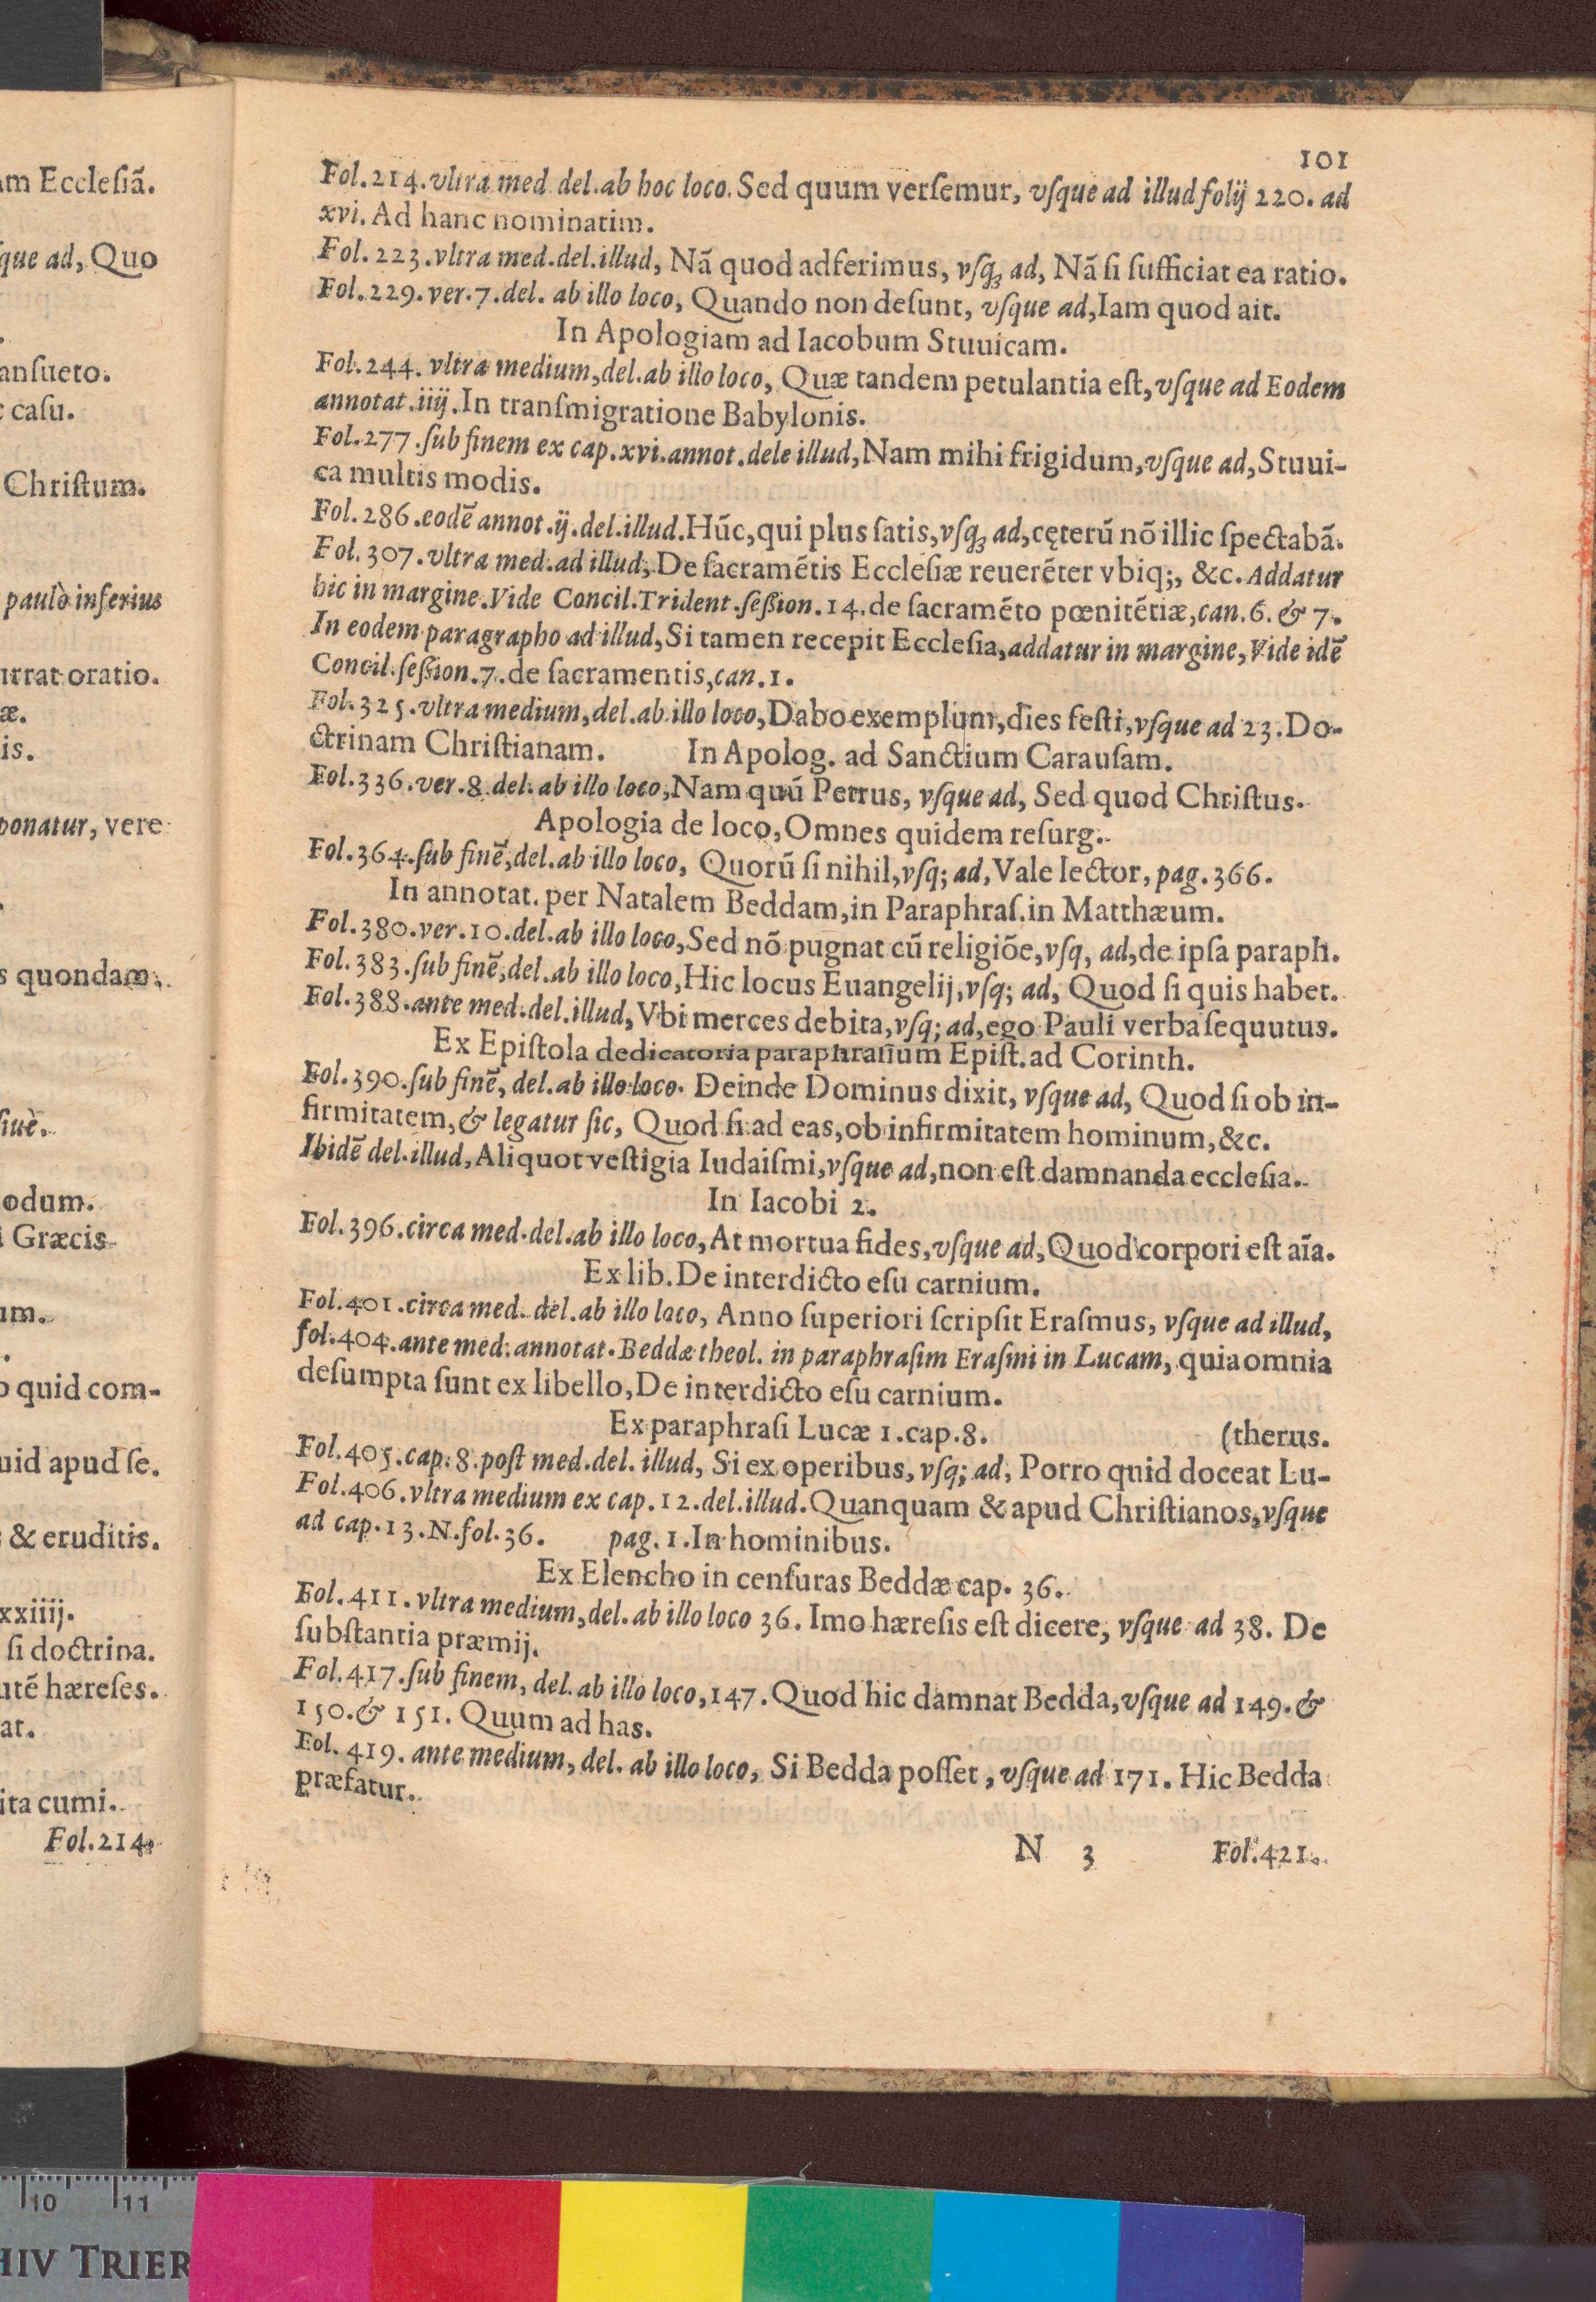 am Ecclesiã.
sque ad, Quo
ansueto.
casu.
Christum.
paulò inferius
urrat oratio.
æ.
is.
ponatur, vere
s quondam.
siuè.
odum.
Græcis
um.
quid com-
uid apud se.
& eruditis.
xxiiij.
si doctrina.
utẽ hæreses.
at.
ita cumi.
Fol.214.
101
Fol.214.vltra med del.ab hoc loco. Sed quum versemur, vsque ad illud folij 220. ad
xvi. Ad hanc nominatim.
Fol. 223.vltra med.del.illud, Nã quod adferimus, vsqꝫ ad, Nã si sufficiat ea ratio.
Fol.229.ver.7.del. ab illo loco, Quando non desunt, vsque ad, Iam quod ait.
In Apologiam ad Iacobum Stuuicam.
Fol.244. vltra medium, del.ab illo loco, Quæ tandem petulantia est, vsque ad Eodem
annotat.iiij.In transmigratione Babylonis.
Fol.277.sub finem ex cap.xvi.annot.dele illud, Nam mihi frigidum, vsque ad, Stuui-
ca multis modis.
Fol.286.eodẽ annot.ij.del.illud.Hũc, qui plus satis, vsqꝫ ad, cęterũ nõ illic spectabã.
Fol.307.vltra med.ad illud, De sacramẽtis Ecclesiæ reuerẽter vbiq;, &c. Addatur
hic in margine.Vide Concil.Trident.session.14.de sacramẽto pœnitẽtiæ, can.6. & 7.
In eodem paragrapho ad illud, Si tamen recepit Ecclesia, addatur in margine, Vide idẽ
Concil.session.7.de sacramentis, can.1.
Fol.325.vltra medium, del.ab illo loco, Dabo exemplum, dies festi, vsque ad 23.Do-
ctrinam Christianam. In Apolog. ad Sanctium Carausam.
Fol.336.ver.8.del.ab illo loco, Nam quũ Petrus, vsque ad, Sed quod Christus.
Apologia de loco, Omnes quidem resurg.
Fol.364.sub finẽ, del.ab illo loco, Quorũ si nihil, vsq; ad, Vale lector, pag.366.
In annotat. per Natalem Beddam, in Paraphras.in Matthæum.
Fol.380.ver.10.del.ab illo loco, Sed nõ pugnat cũ religiõe, vsq, ad, de ipsa paraph.
Fol.383.sub finẽ, del.ab illo loco, Hic locus Euangelij, vsq; ad, Quod si quis habet.
Fol.388.ante med.del.illud, Vbi merces debita, vsq; ad, ego Pauli verba sequutus.
Ex Epistola dedicatoria paraphrasium Epist. ad Corinth.
Fol.390.sub finẽ, del.ab illo loco. Deinde Dominus dixit, vsque ad, Quod si ob in-
firmitatem, & legatur sic, Quod si ad eas, ob infirmitatem hominum, &c.
Ibidẽ del.illud, Aliquot vestigia Iudaismi, vsque ad, non est damnanda ecclesia.
In Iacobi 2.
Fol.396.circa med.del.ab illo loco, At mortua fides, vsque ad, Quod corpori est aĩa.
Ex lib. De interdicto esu carnium.
Fol.401.circa med. del.ab illo loco, Anno superiori scripsit Erasmus, vsque ad illud,
fol.404.ante med.annotat.Beddæ theol. in paraphrasim Erasmi in Lucam, quia omnia
desumpta sunt ex libello, De interdicto esu carnium.
Ex paraphrasi Lucæ 1.cap.8. (therus.
Fol.405.cap.8.post med.del. illud, Si ex operibus, vsq; ad, Porro quid doceat Lu-
Fol.406.vltra medium ex cap.12.del.illud.Quanquam & apud Christianos, vsque
ad cap.13.N.fol.36. pag.1.In hominibus.
Ex Elencho in censuras Beddæ cap. 36.
Fol.411.vltra medium, del.ab illo loco 36. Imo hæresis est dicere, vsque ad 38. De
substantia præmij.
Fol.417.sub finem, del.ab illo loco, 147.Quod hic damnat Bedda, vsque ad 149. &
150.& 151. Quum ad has.
Fol. 419. ante medium, del. ab illo loco, Si Bedda posset, vsque ad 171. Hic Bedda
præfatur.
N 3 Fol.421.
10 11
HIV TRIER